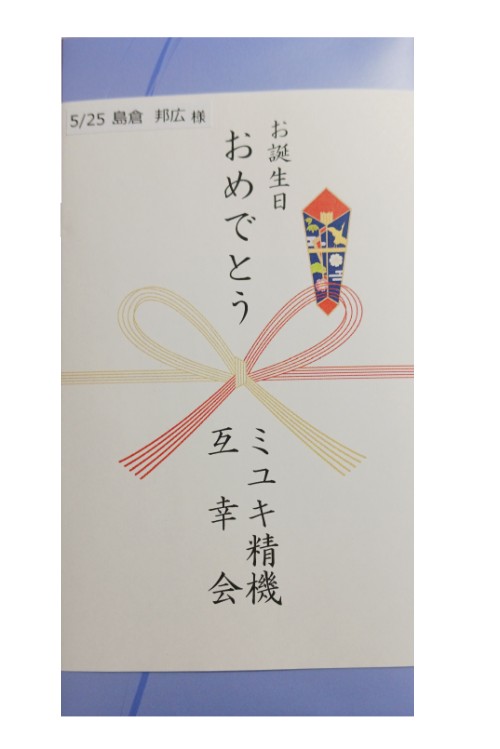 5/25 島倉 邦広 様
お誕生日
おめでとう
ミユキ精機
互幸会